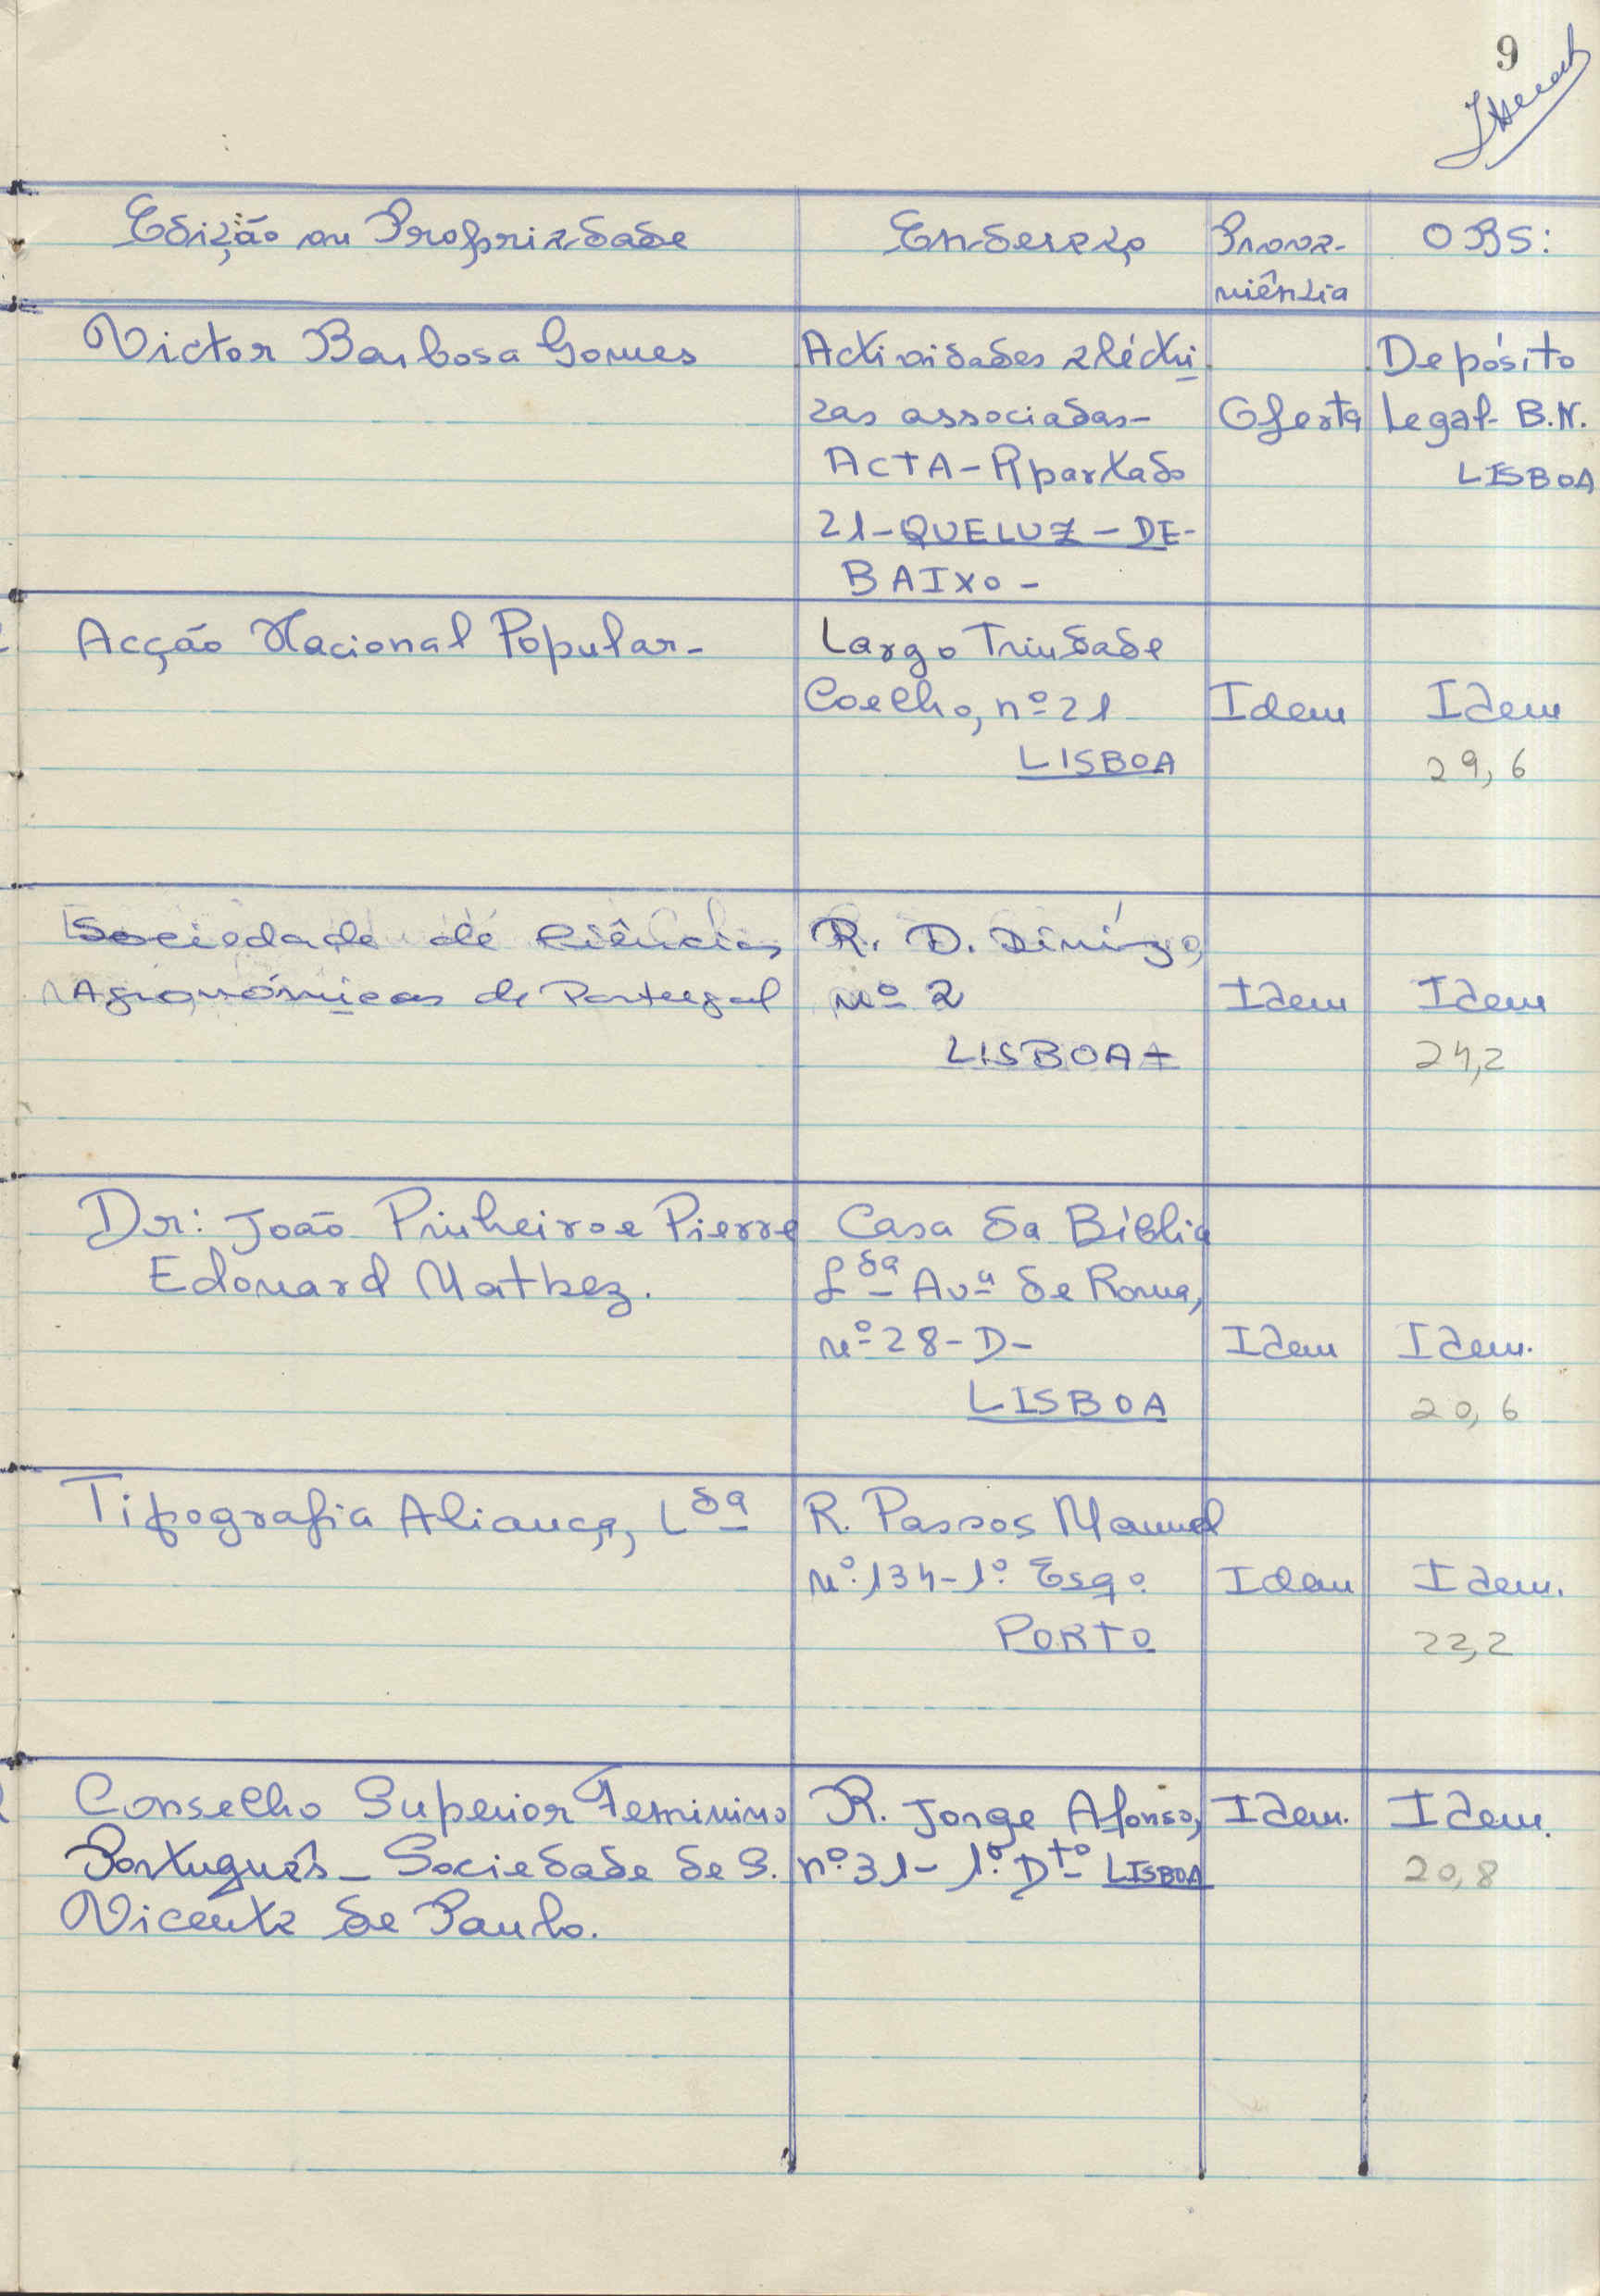 9
Edição ou Propriedade
Endereço
Prove-
niência
OBS:
Victor Barbosa Gomes
Actividades eléctri
cas associadas-
ACTA-Apartado
21-QUELUZ-DE-
BAIXO-
Oferta
Depósito
Legal- B.N.
LISBOA
Acção Nacional Popular-
Largo Trindade
Coelho, nº 21
LISBOA
Idem
Idem
29,6
Sociedade de Ciências
Agronómicas de Portugal
R. D. Diniz,
nº 2
LISBOA
Idem
Idem
24,2
Dr: João Pinheiro e Pierre
Edouard Mathez.
Casa da Bíblia
Ldª Avª de Roma,
nº 28-D-
LISBOA
Idem
Idem.
20,6
Tipografia Aliança, Ldª
R. Passos Manuel
nº 134-1º. Esqº.
PORTO
Idem
Idem.
22,2
Conselho Superior Feminino
Português-Sociedade de S.
Vicente de Paulo.
R. Jorge Afonso,
nº 31-1º. Dtº LISBOA
Idem.
Idem.
20,8